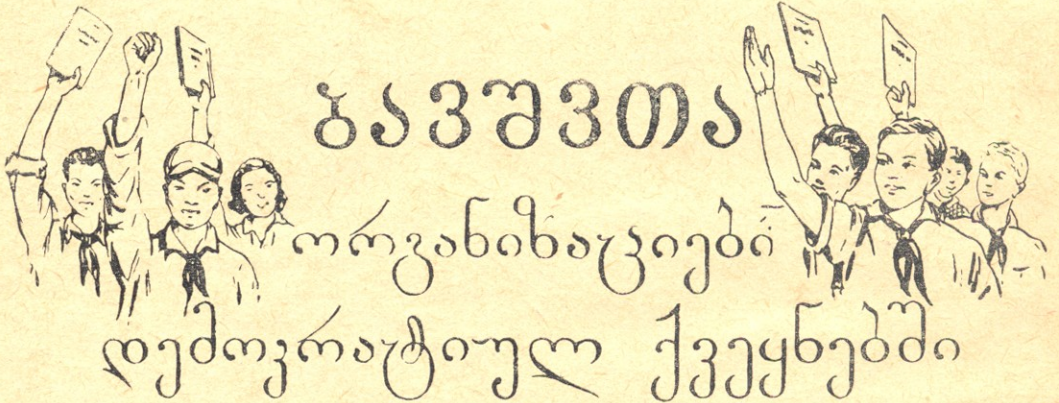 ბავშვთა
ორგანიზაციები
დემოკრატიულ ქვეყნებში